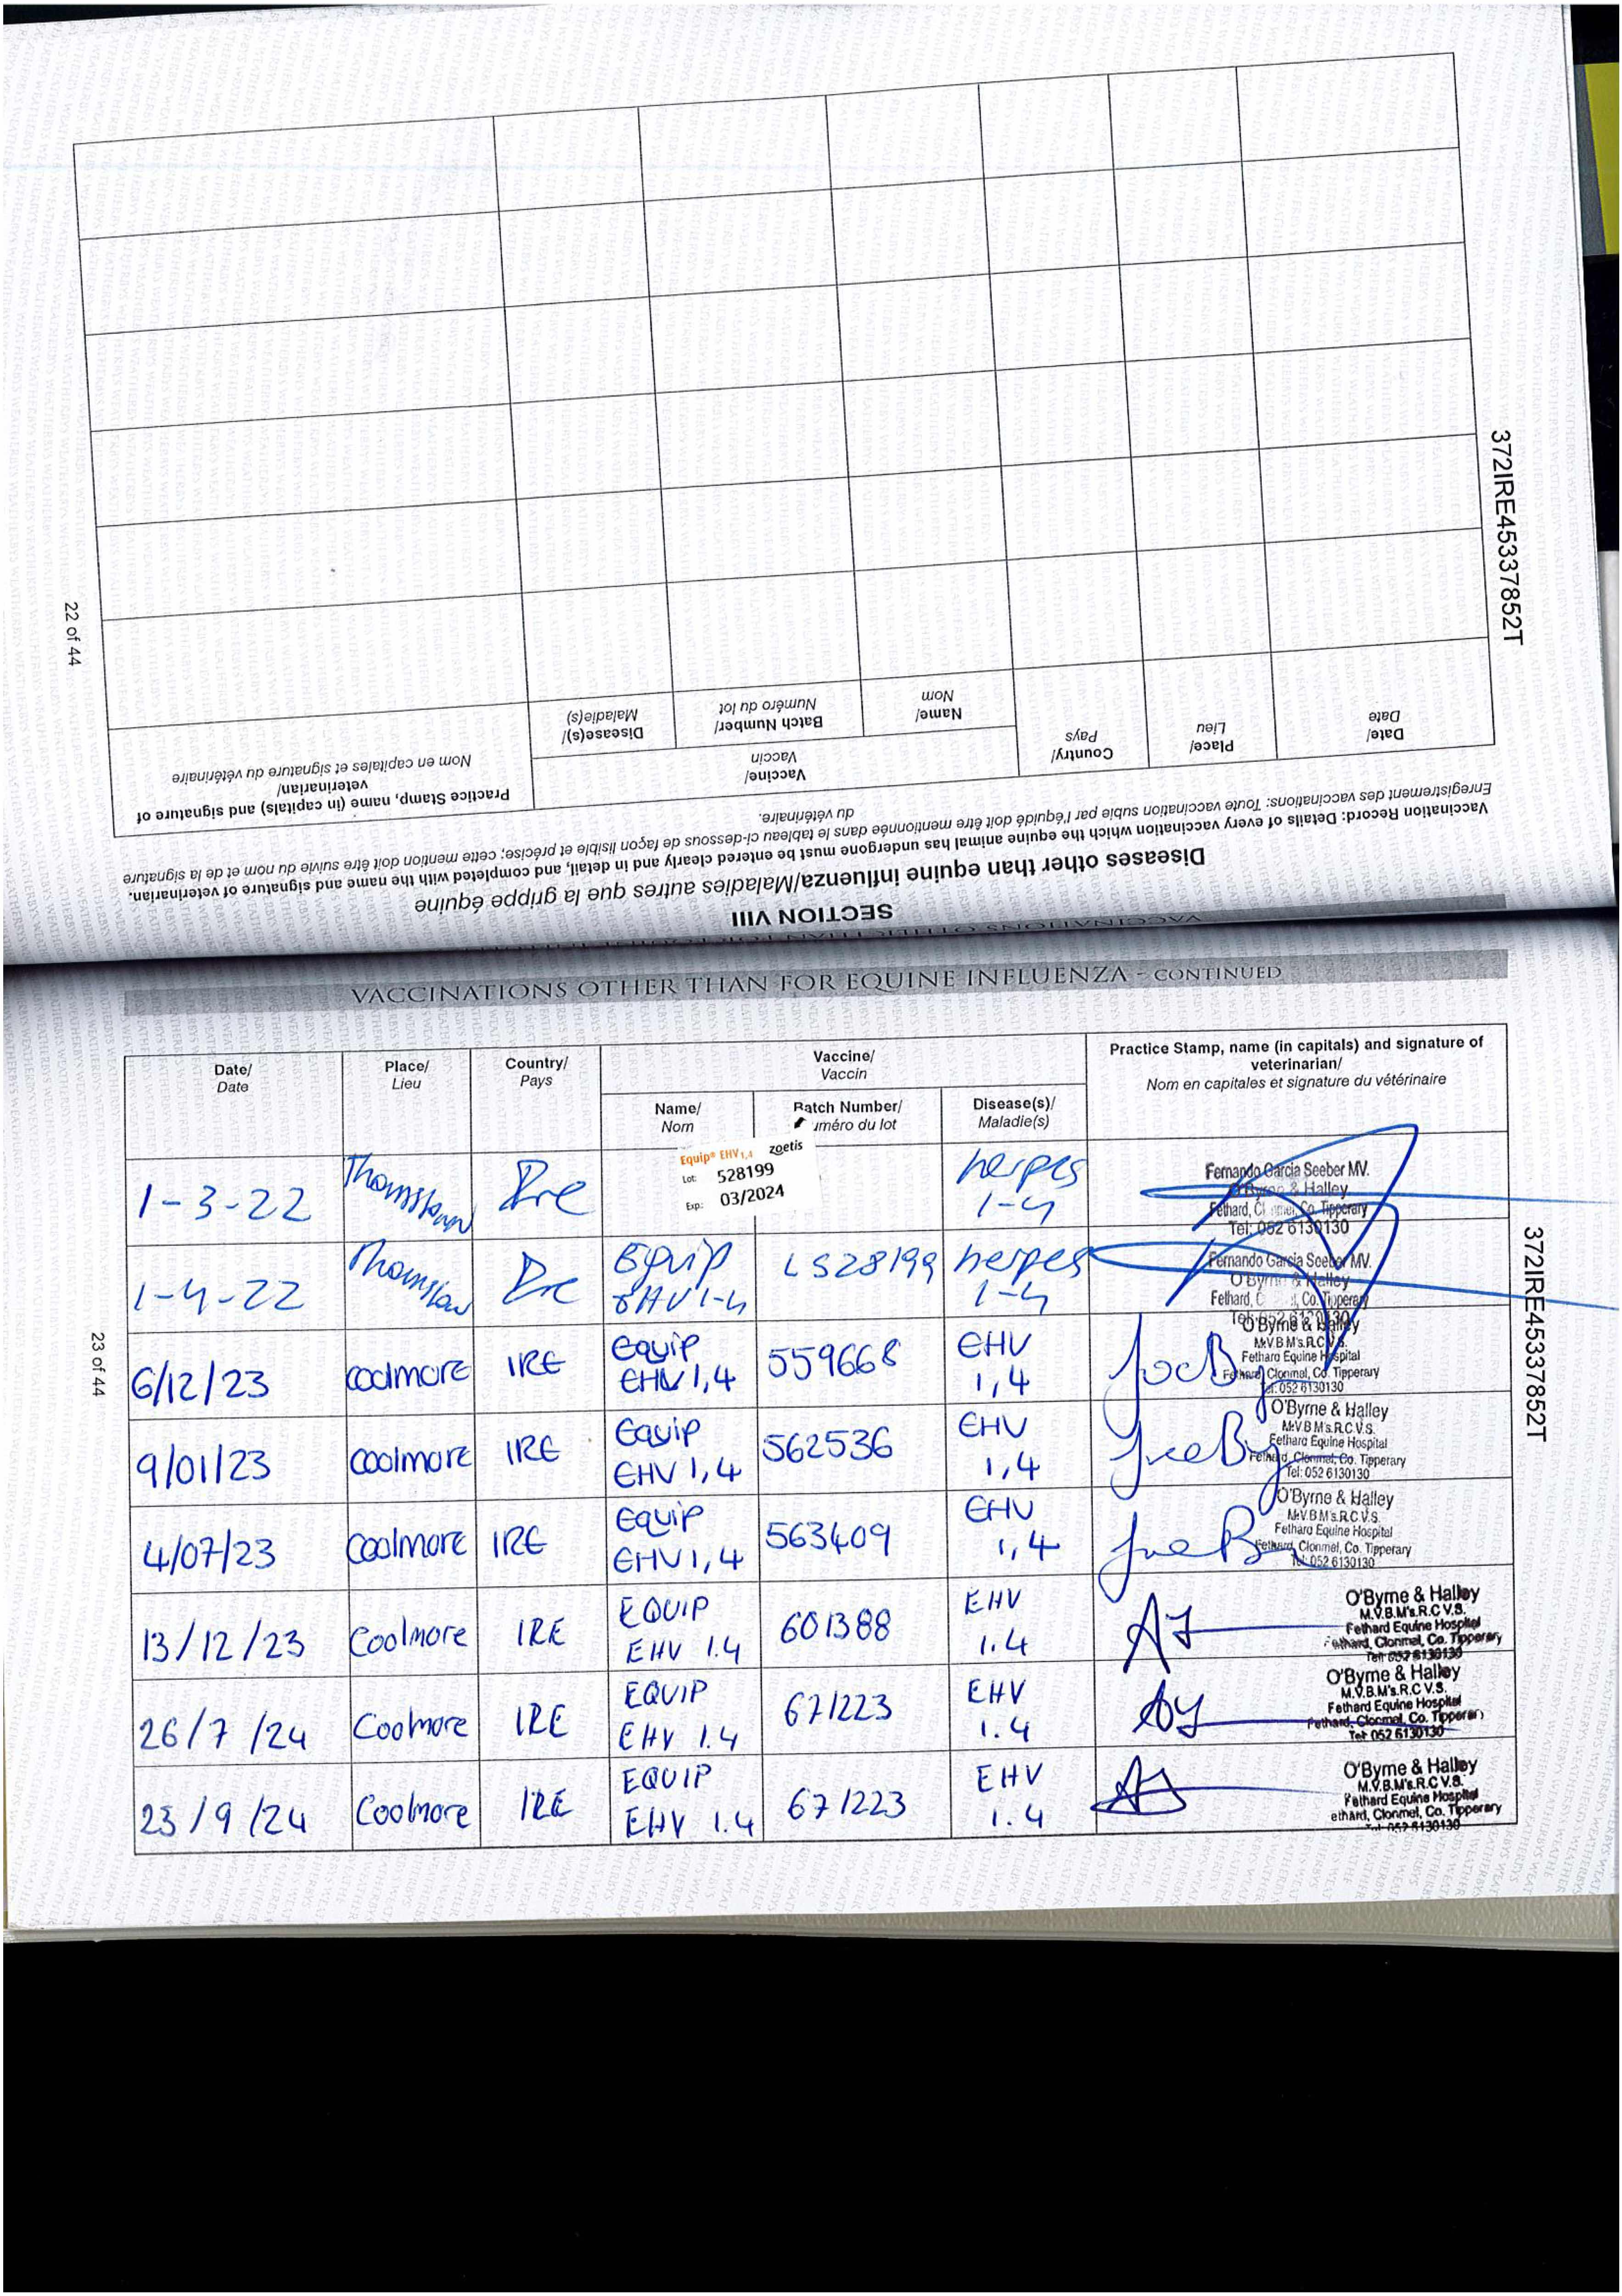 SECTION VIII
Diseases other than equine influenza/Maladies autres que la grippe équine
Vaccination Record: Details of every vaccination which the equine animal has undergone must be entered clearly and in detail, and completed with the name and signature of veterinarian.
Enregistrement des vaccinations: Toute vaccination subie par l'équidé doit être mentionnée dans le tableau ci-dessous de façon lisible et précise; cette mention doit être suivie du nom et de la signature
du vétérinaire.
Date/
Date
Place/
Lieu
Country/
Pays
Vaccine/
Vaccin
Name/
Nom
Batch Number/
Numéro du lot
Disease(s)/
Maladie(s)
Practice Stamp, name (in capitals) and signature of
veterinarian/
Nom en capitales et signature du vétérinaire
372IRE45337852T
22 of 44
VACCINATIONS OTHER THAN FOR EQUINE INFLUENZA - CONTINUED
Date/
Date
Place/
Lieu
Country/
Pays
Vaccine/
Vaccin
Name/
Nom
Batch Number/
uméro du lot
Disease(s)/
Maladie(s)
Practice Stamp, name (in capitals) and signature of
veterinarian/
Nom en capitales et signature du vétérinaire
1-3-22 Thomstown Ire
Equip® EHV1,4 zoetis
Lot: 528199
Exp: 03/2024
herpes
1-4
Fernando Garcia Seeber MV.
O'Byrne & Halley
Fethard, Co. Tipperary
Tel: 052 6130130
1-4-22 Ire
Equip
EHV 1-4
L528199
herpes
1-4
Fernando Garcia Seeber MV.
O'Byrne & Halley
Fethard, Co. Tipperary
Tel: 052 6130130
6/12/23 Coolmore IRE
Equip
EHV 1,4
559668
EHV
1,4
O'Byrne & Halley
M.V.B M's.R.C.V.S.
Fethard Equine Hospital
Fethard, Clonmel, Co. Tipperary
Tel: 052 6130130
9/01/23 Coolmore IRE
Equip
EHV 1,4
562536
EHV
1,4
O'Byrne & Halley
M.V.B M's.R.C.V.S.
Fethard Equine Hospital
Fethard, Clonmel, Co. Tipperary
Tel: 052 6130130
4/07/23 Coolmore IRE
Equip
EHV 1,4
563409
EHV
1,4
O'Byrne & Halley
M.V.B M's.R.C.V.S.
Fethard Equine Hospital
Fethard, Clonmel, Co. Tipperary
Tel: 052 6130130
13/12/23 Coolmore IRE
EQUIP
EHV 1.4
601388
EHV
1.4
O'Byrne & Halley
M.V.B.M's.R.C V.S.
Fethard Equine Hospital
Fethard, Clonmel, Co. Tipperary
Tel: 052 6130130
26/7/24 Coolmore IRE
EQUIP
EHV 1.4
671223
EHV
1.4
O'Byrne & Halley
M.V.B.M's.R.C V.S.
Fethard Equine Hospital
Fethard, Clonmel, Co. Tipperary
Tel: 052 6130130
23/9/24 Coolmore IRE
EQUIP
EHV 1.4
671223
EHV
1.4
O'Byrne & Halley
M.V.B.M's.R.C V.S.
Fethard Equine Hospital
ethard, Clonmel, Co. Tipperary
Tel: 052 6130130
372IRE45337852T
23 of 44